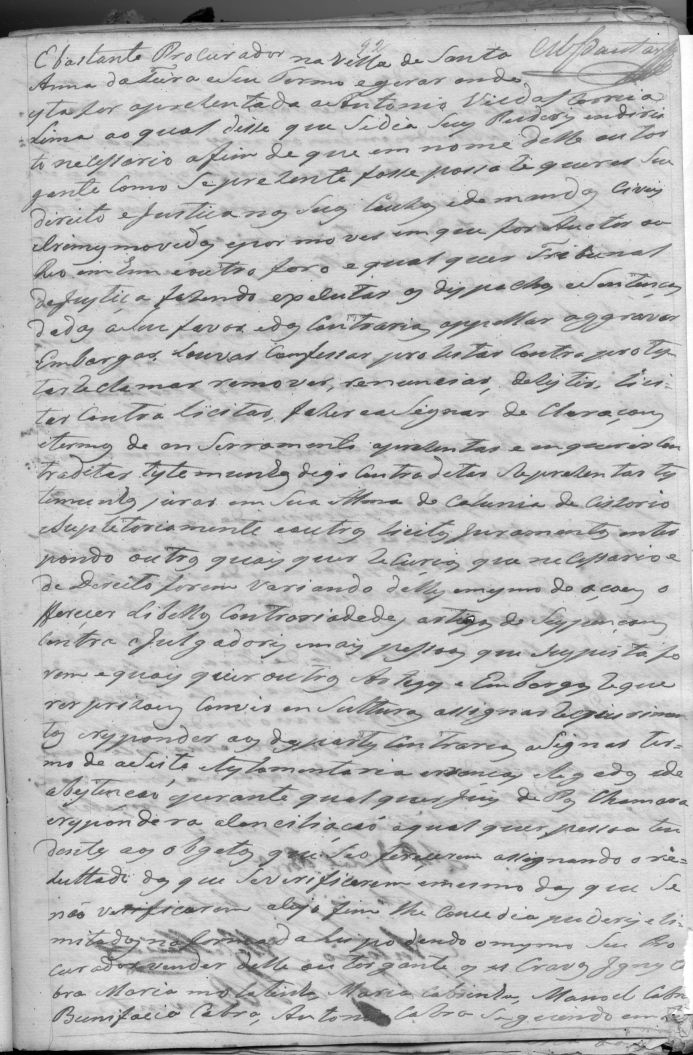 92
E bastante Procurador na Villa de Santo
Anna da feira e seu termo e gerar onde
esta for apresentada a Antonio Viidal Correia
Lima ao qual disse que sedia seus Puderes indivis
to necessario afim de que em nome delle outor
gante como se prezente fosse possa requerer seu
direito e Justiça nas suas Cauzas e demandas Civeis
Crimes movidas epor mover em que for Auctor ou
Reo em hum eoutro foro e qual quer Tribunal
de Justiça fazendo ezecutar os dispachos e Sentenças
dadas a seu favor edas Contrarias appellar aggravar
Embargar louvar Confessar, protestar Contra protes
tar Reclamar remover, renunciar, dezister, lici-
tar Contra licitar, fazer e asegnar de Claraçoens
etermos de en Serramento aprezentar e enquerir Con
traditar testemunhas digo Contraditar Reprezentar tes
temunhas, jurar em sua Alma de Calunia de Cisorio
eSupletoriamente eoutros licitos Juramentos enter
pondo outros quais quer Recurços que necessario e
de Dereito forem variando delles emesmo de açoens o
fferecer Libellos Contrariedades, artigos de Suspençoens
Contra Julgadores emais pessoas que Suspeitas fo
rem equais quer outros Artigos e Embargos Reque
rer prizoens Convir em Solturas assignar Requerimen
tos responder aos das partes Contrarias aSignar ter-
mo de aceite testamentaria eranças legados ede
abstenção, perante qual quer Juiz de Paz Chamar a
eresponder a Conciliação á qual quer pessoa ten
dente aos obgetos que se offerecerem assignando o re=
zultado dos que se verificarem emesmo dos que Se
não verificarem alejo fim lhe Concedia puderes eli-
mitados na forma da Lei podendo omesmo Seu Pro
curador vender delle outorgante os es Cravos Ignes C
bra Maria molatinha Maria Cabrinha, Manoel Cabra
Bunifacio Cabra, Antonio Cabra Seguindo em